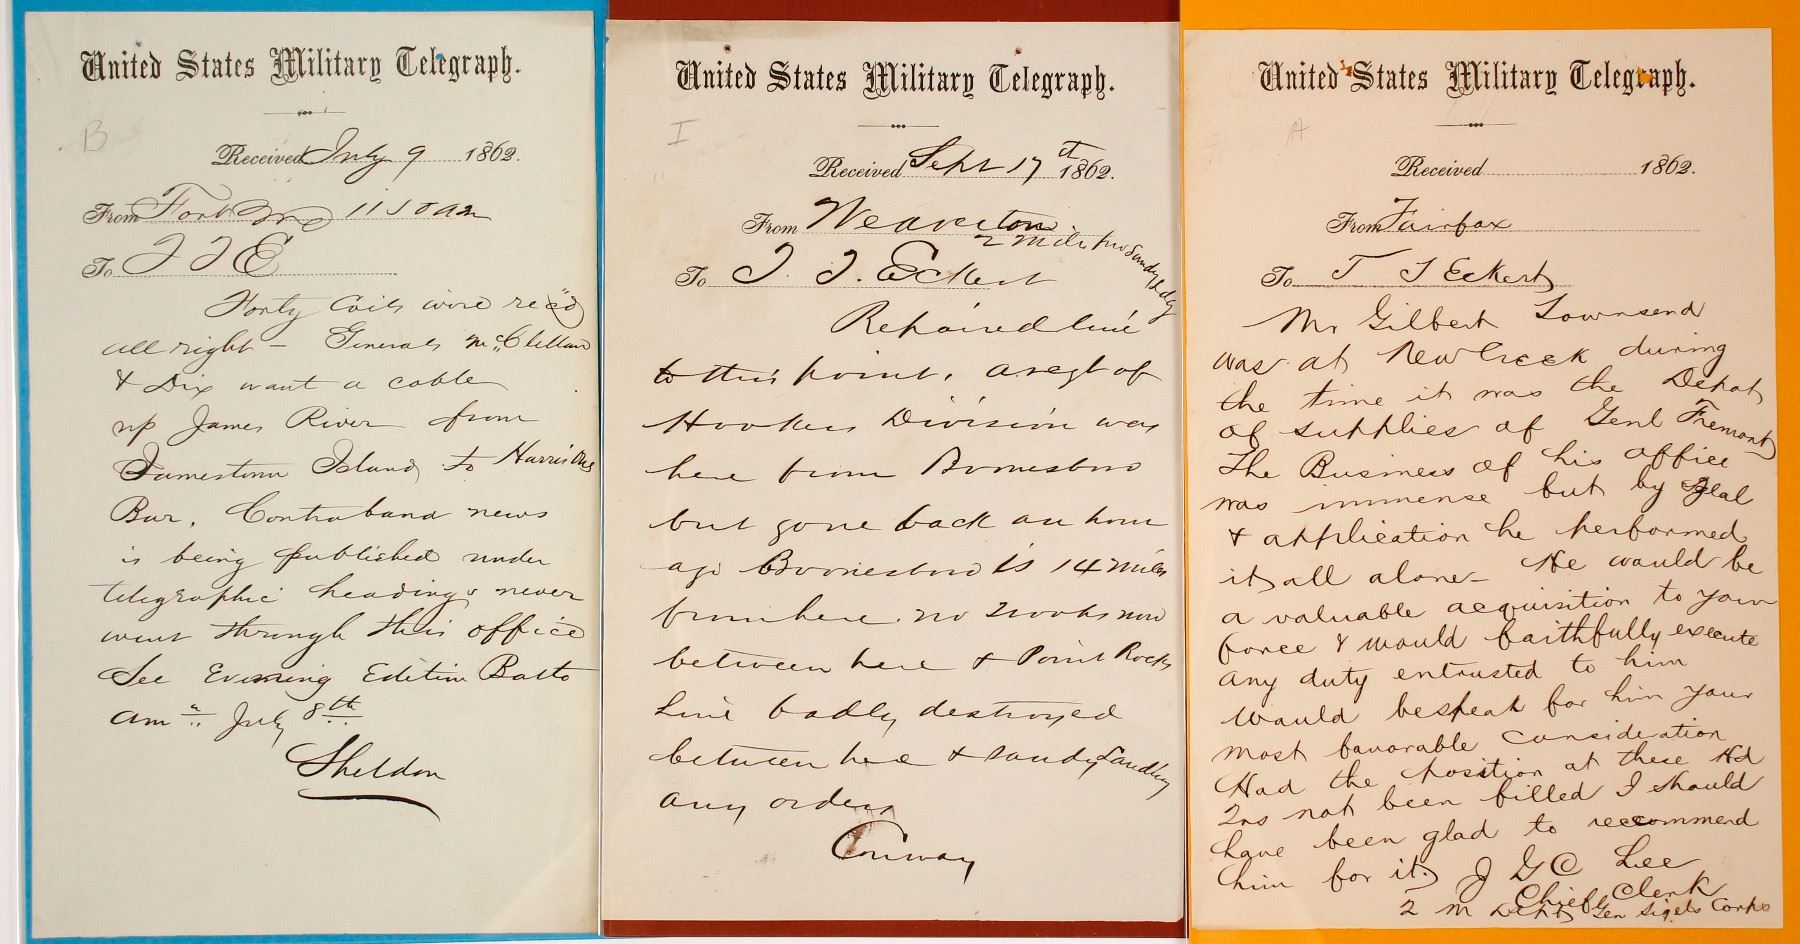 United States Military Telegraph.
B
Received July 9 1862.
From Fort Mo 11 50 am
To T T E
Forty Coils were recd
all right - Generals McClellan
& Dix want a cable
up James River from
Jamestown Island to Harrisons
Bar. Contraband news
is being published under
telegraphic headings never
went through this office
See Evening Edition Balto
am " July 8th
Sheldon
United States Military Telegraph.
I
Received Sept 17th 1862.
From Weaverton
2 miles from Sandy Hook
To T. T. Eckert
Repaired line
to this point. a regt of
Hookers Division was
here from Boonesboro
but gone back an hour
ago Boonesboro is 14 miles
from here. no troops now
between here & Point Rocks
Line badly destroyed
between here & Sandy
any orders
Conway
United States Military Telegraph.
A
Received 1862.
From Fairfax
To T T Eckert
Mr Gilbert Townsend
was at New Creek during
the time it was the Depot
of supplies of Genl Fremont
The Business of his office
was immense but by zeal
& application he performed
it all alone - He would be
a valuable acquisition to your
force & would faithfully execute
any duty entrusted to him
Would bespeak for him your
most favorable consideration
Had the position at these Hd
Qrs not been filled I should
have been glad to reccommend
him for it. J G C Lee
Chief Clerk
2 M Dept Gen Sigels Corps